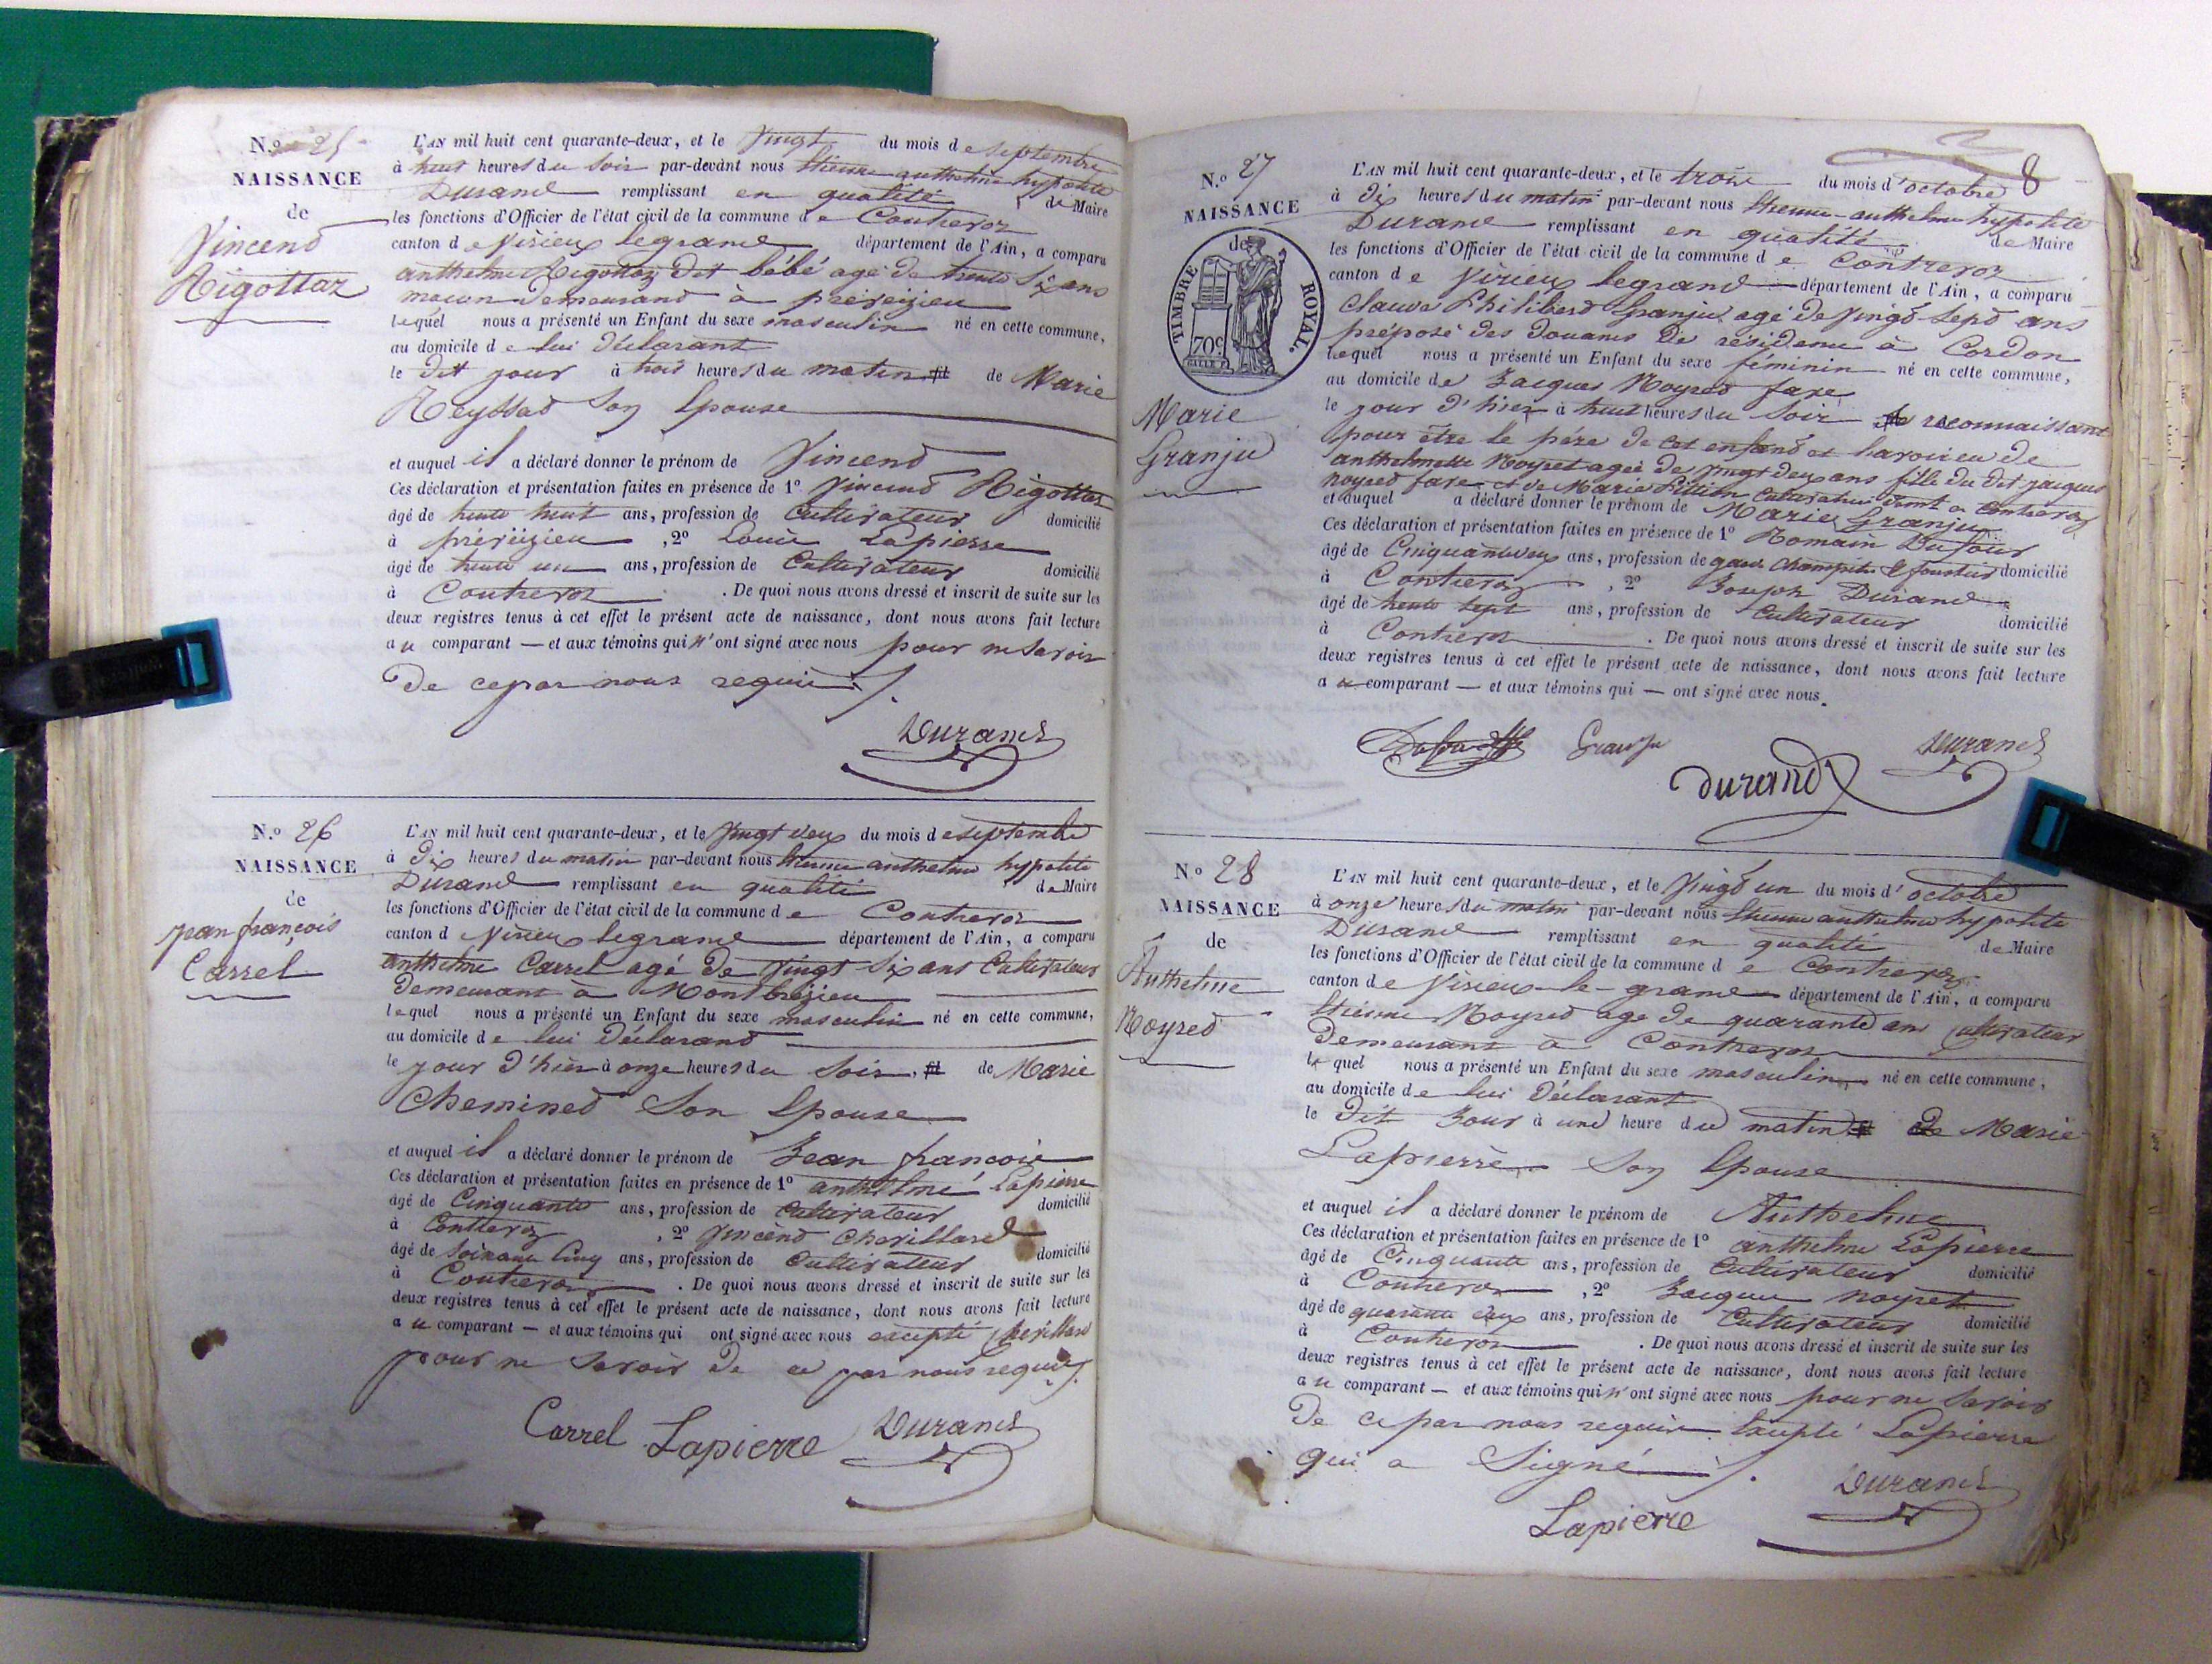 N.º 25
NAISSANCE
de
Vincend
Rigottaz
L'AN mil huit cent quarante-deux, et le Vingt du mois de septembre
à huit heures du soir par-devant nous Etienne anthelme hypolite
Durand remplissant en qualité de Maire
les fonctions d'Officier de l'état civil de la commune de Contrevoz
canton de Virieux legrand département de l'Ain, a comparu
anthelme Rigottaz dit bébé agé de trente Six ans
maçon demeurand à preveizieu
lequel nous a présenté un Enfant du sexe masculin né en cette commune,
au domicile de lui déclarant
le dit jour à trois heures du matin et de Marie
Reyssad Son Epouse
et auquel il a déclaré donner le prénom de Vincend
Ces déclaration et présentation faites en présence de 1º Vincend Rigottaz
âgé de trente huit ans, profession de Cultivateur domicilié
à preveizieu , 2º Louis Lapierre
âgé de trente un ans, profession de Cultivateur domicilié
à Contrevoz . De quoi nous avons dressé et inscrit de suite sur les
deux registres tenus à cet effet le présent acte de naissance, dont nous avons fait lecture
au comparant — et aux témoins qui n'ont signé avec nous pour ne Savoir
de ce par nous requis ./.
Durand
N.º 26
NAISSANCE
de
jean françois
Carrel
L'AN mil huit cent quarante-deux, et le Vingt deux du mois de septembre
à Dix heures du matin par-devant nous Etienne anthelme hypolite
Durand remplissant en qualité de Maire
les fonctions d'Officier de l'état civil de la commune de Contrevoz
canton d Virieux legrand département de l'Ain, a comparu
anthelme Carrel agé de Vingt Six ans Cultivateur
demeurant à Montbrézieu
lequel nous a présenté un Enfant du sexe masculin né en cette commune,
au domicile de lui Déclarand
le jour d'hier à onze heures du Soir et de Marie
Chemined Son Epouse
et auquel il a déclaré donner le prénom de Jean françois
Ces déclaration et présentation faites en présence de 1º anthelme Lapierre
âgé de Cinquante ans, profession de Cultivateur domicilié
à Contrevoz , 2º Vincend Chevillard
âgé de Soixante Cinq ans, profession de Cultivateur domicilié
à Contrevoz . De quoi nous avons dressé et inscrit de suite sur les
deux registres tenus à cet effet le présent acte de naissance, dont nous avons fait lecture
au comparant — et aux témoins qui ont signé avec nous excepté Chevillard
pour ne Savoir de ce par nous requis ./.
Carrel Lapierre Durand
8
N.º 27
NAISSANCE
de
TIMBRE ROYAL.
70c
Marie
Granju
L'AN mil huit cent quarante-deux, et le trois du mois d'octobre
à Dix heures du matin par-devant nous Etienne-anthelme hypolite
Durand remplissant en qualité de Maire
les fonctions d'Officier de l'état civil de la commune de Contrevoz
canton de Virieux legrand département de l'Ain, a comparu
Claude Philiberd Granju agé de Vingt-Sept ans
préposé des Douanes De résidence à Cordon
lequel nous a présenté un Enfant du sexe féminin né en cette commune,
au domicile de Jacques Noyred fave
le jour d'hier à huit heures du Soir et reconnaissant
pour être le père de cet enfand et l'avoir eu de
anthelmette Noyret agée de Vingt deux ans fille du dit jacques
noyred fave et de Marie Pittion Cultivateur Domt a Contrevoz
et auquel a déclaré donner le prénom de Marie Granju
Ces déclaration et présentation faites en présence de 1º Romain Dufour
âgé de Cinquante deux ans, profession de garde Champetre & forestier domicilié
à Contrevoz , 2º Joseph Durand
âgé de trente Sept ans, profession de Cultivateur domicilié
à Contrevoz . De quoi nous avons dressé et inscrit de suite sur les
deux registres tenus à cet effet le présent acte de naissance, dont nous avons fait lecture
au comparant — et aux témoins qui — ont signé avec nous.
Granju Durand
Durand
N.º 28
NAISSANCE
de
Anthelme
Noyred
L'AN mil huit cent quarante-deux, et le Vingt un du mois d'octobre
à onze heures du matin par-devant nous Etienne anthelme hypolite
Durand remplissant en qualité de Maire
les fonctions d'Officier de l'état civil de la commune de Contrevoz
canton de Virieux-le-grand département de l'Ain, a comparu
Etienne Noyred agé de quarante ans Cultivateur
demeurant à Contrevoz
lequel nous a présenté un Enfant du sexe masculin né en cette commune,
au domicile de lui Déclarant
le Dit Jour à une heure du matin et de Marie
Lapierre Son Epouse
et auquel il a déclaré donner le prénom de Anthelme
Ces déclaration et présentation faites en présence de 1º anthelme Lapierre
âgé de Cinquante ans, profession de Cultivateur domicilié
à Contrevoz , 2º Jacques noyret
âgé de quarante deux ans, profession de Cultivateur domicilié
à Contrevoz . De quoi nous avons dressé et inscrit de suite sur les
deux registres tenus à cet effet le présent acte de naissance, dont nous avons fait lecture
au comparant — et aux témoins qui n'ont signé avec nous pour ne Savoir
De ce par nous requis Excepté Lapierre
qui a Signé ./.
Durand
Lapierre